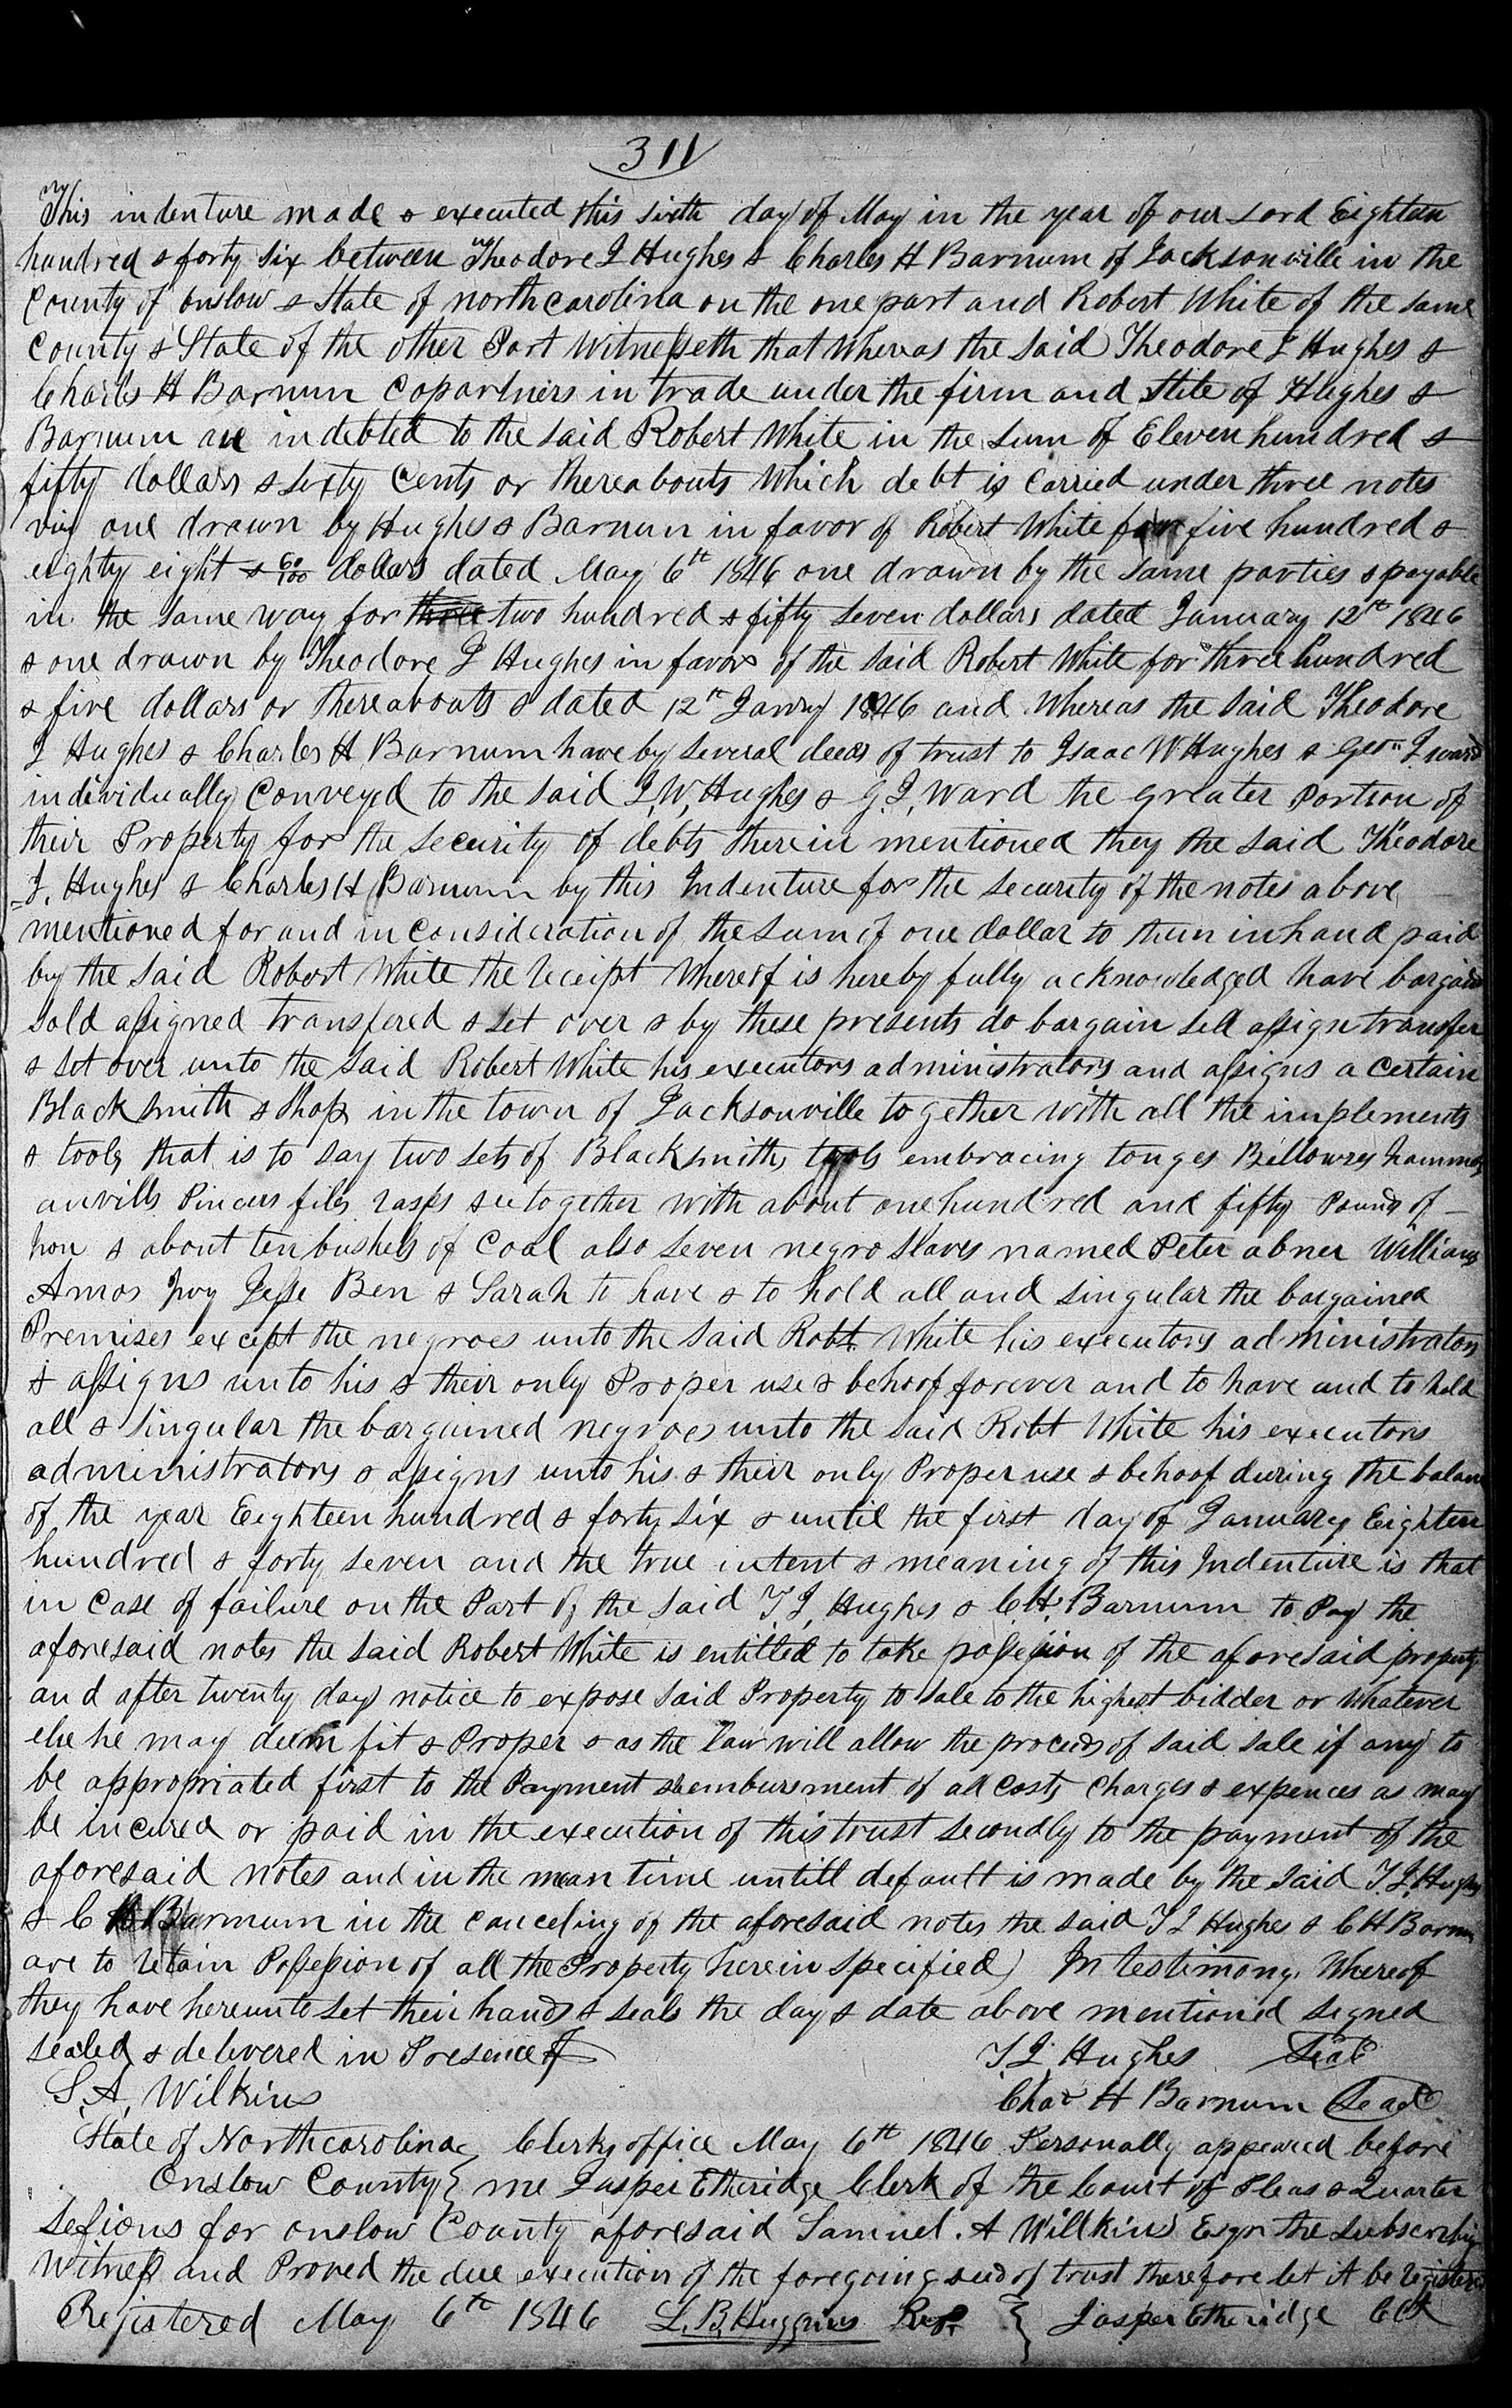 311
This indenture made & executed this sixth day of May in the year of our Lord Eighteen
hundred & forty six between Theodore J Hughes & Charles H Barnum of Jacksonville in the
County of onslow & State of north carolina on the one part and Robert White of the same
County & State of the other Part Witnesseth that Whereas the said Theodore J Hughes &
Charles H Barnum Copartners in trade under the firm and Stile of Hughes &
Barnum are indebted to the said Robert White in the sum of Eleven hundred &
fifty dollars & sixty Cents or thereabouts Which debt is Carried under three notes
viz one drawn by Hughes & Barnum in favor of Robert White for five hundred &
eighty eight & 60/100 dollars dated May 6th 1846 one drawn by the same parties & payable
in the same way for three two hundred & fifty seven dollars dated January 12th 1846
& one drawn by Theodore J Hughes in favor of the said Robert White for three hundred
& five dollars or thereabouts & dated 12th Janry 1846 and Whereas the said Theodore
J Hughes & Charles H Barnum have by several deeds of trust to Isaac W Hughes & Geo J ward
individually Conveyed to the said J, W, Hughes & G. J, Ward the greater Portion of
their Property for the security of debts therein mentioned they the said Theodore
J. Hughes & Charles H Barnum by this Indenture for the security of the notes above
mentioned for and in Consideration of the sum of one dollar to them in hand paid
by the said Robert White the receipt Whereof is hereby fully acknowledged have bargaind
sold assigned transfered & set over & by these presents do bargain sell assign transfer
& set over unto the said Robert White his executors administrators and assigns a Certain
Black smith & Shop in the town of Jacksonville together with all the implements
& tools that is to say two sets of Blacksmiths tools embracing tonges Bellowses hammers
anvills Pincers files rasps &c together with about one hundred and fifty Pounds of
Iron & about ten bushels of Coal also seven negro slaves named Peter abner Williams
Amos Ivy Jesse Ben & Sarah to have & to hold all and singular the bargained
Premises except the negroes unto the said Robt White his executors administrators
& assigns unto his & their only Proper use & behoof forever and to have and to hold
all & singular the bargained negroes unto the said Robt White his executors
administrators & assigns unto his & their only Proper use & behoof during the balance
of the year Eeighteen hundred & forty six & until the first day of January Eighteen
hundred & forty seven and the true intent & meaning of this Indenture is that
in Case of failure on the Part of the said T J, Hughes & C H. Barnum to Pay the
aforesaid notes the said Robert White is entitled to take possession of the aforesaid property
and after twenty days notice to expose said Property to sale to the highest bidder or Whatever
else he may deem fit & Proper & as the law will allow the proceeds of said sale if any to
be appropriated first to the Payment & reimbursment of all Costs Charges & expences as may
be incured or paid in the execution of this trust secondly to the payment of the
aforesaid notes and in the mean time untill default is made by the said T. J. Hughes
& C H Barnum in the canceling of the aforesaid notes the said T J Hughes & C H Barnum
are to retain Possession of all the Property herein specified) In testimony Whereof
they have hereunto set their hands & seals the day & date above mentioned signed
sealed & delivered in Presence of T. J. Hughes Seal
S. A. Wilkins Chas H Barnum Seal
State of North carolina Clerks office May 6th 1846 Personally appeared before
Onslow County } me Jasper Etheridge Clerk of the Court of Pleas & Quarter
Sessions for onslow County aforesaid Samuel. A Willkins Esqr the subscribing
Witness and Proved the due execution of the foregoing deed of trust therefore let it be registered
Registered May 6th 1846 L. B. Huggins Regr. } Jasper Etheridge Clk